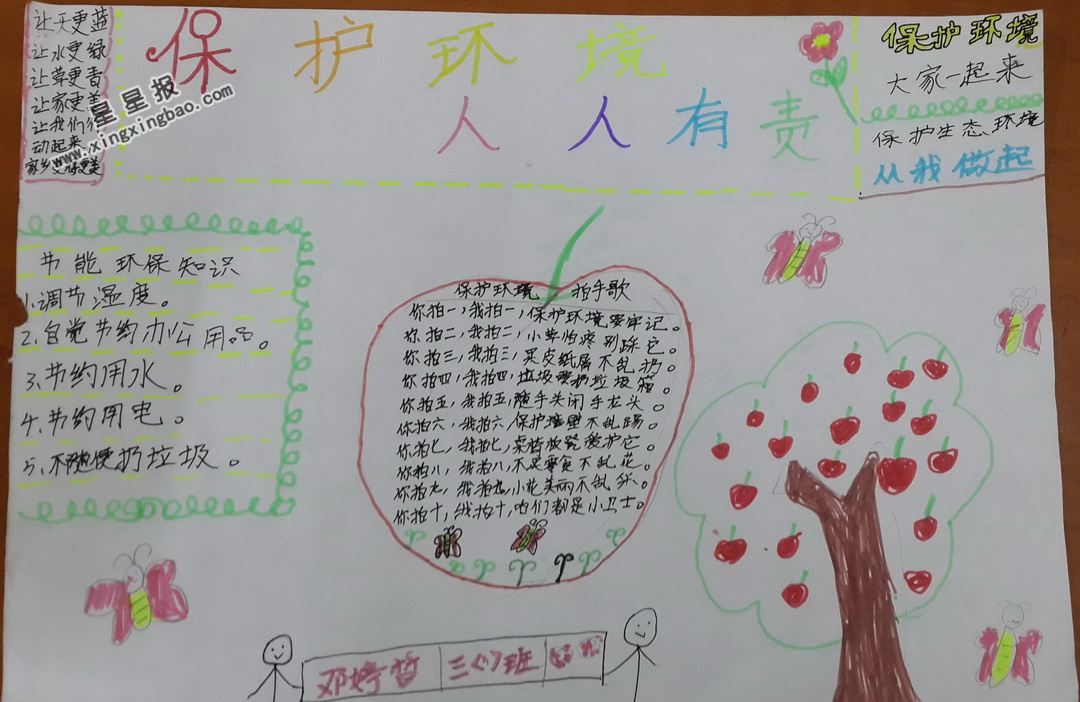 让天更蓝
让水更绿
让草更青
让家更美
让我们行
动起来
家乡更美
星星报
www.xingxingbao.com
保护环境
人人有责
保护环境
大家一起来
保护生态环境
从我做起
节能环保知识
1.调节温度。
2.自觉节约办公用品。
3.节约用水。
4.节约用电。
5.不随便扔垃圾。
保护环境 拍手歌
你拍一,我拍一,保护环境要牢记。
你拍二,我拍二,小草怕疼别踩它。
你拍三,我拍三,果皮纸屑不乱扔。
你拍四,我拍四,垃圾要扔垃圾箱。
你拍五,我拍五,随手关闭手龙头。
你拍六,我拍六,保护墙壁不乱踢。
你拍七,我拍七,桌椅板凳爱护它。
你拍八,我拍八,不足零食不乱花。
你拍九,我拍九,小花美丽不乱
你拍十,我拍十,咱们都是小卫士。
邓婷哲 三(7)班